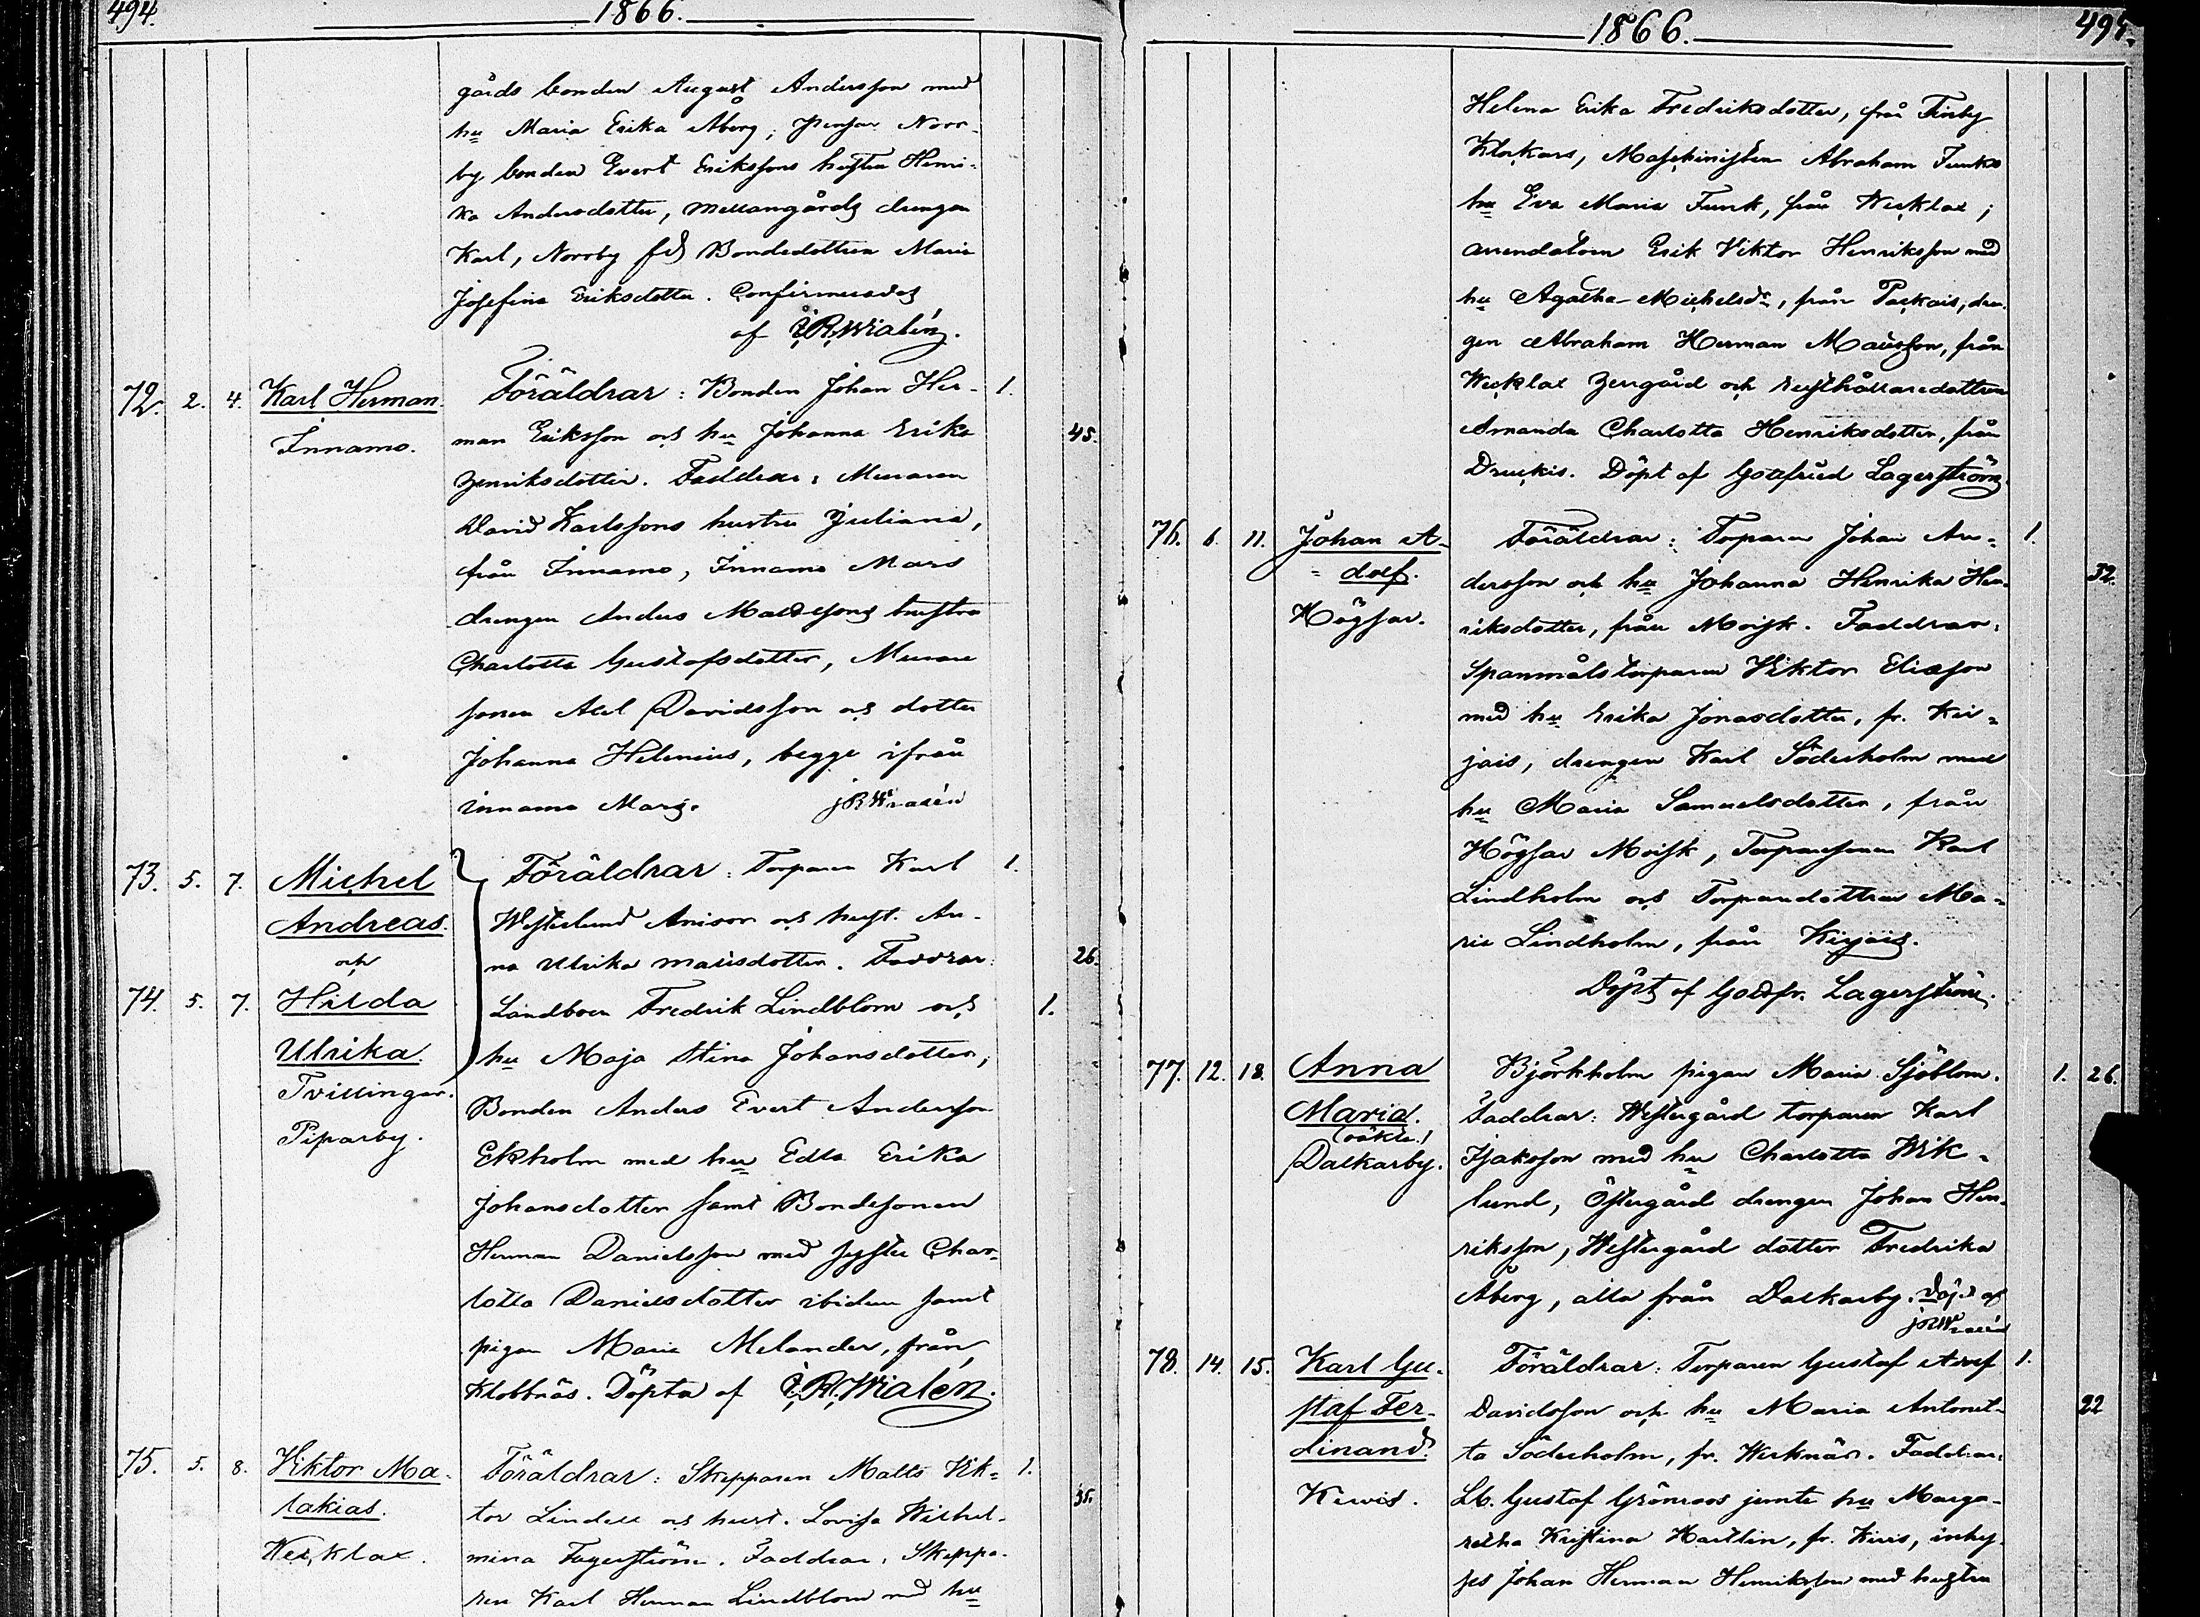 494. 1866.
gårds bonden August Andersson med
hu Maria Erika Åberg; Norr-
by bonden Evert Erikssons hustru Henri-
ka Andersdotter, Mellangårds drengen
Karl, Norrby Bondedottren Maria
Josefina Eriksdotter. Confirmerades
af J.R. Wialén.
72. 2. 4. Karl Herman. Föräldrar: Bonden Johan Her- 1.
Innamo. man Eriksson och hu Johanna Erika 45.
Henriksdotter. Faddrar: Muraren
David Karlssons hustru Juliana,
från Innamo, Innamo Mars
drengen Anders hustru
Charlotta Gustafsdotter, Murare
sonen Axel Davidsson och dotter
Johanna Helenius, begge ifrån
Innamo Mars. JRWialén
73. 5. 7. Michel Föräldrar: Torparen Karl 1.
Andreas. Westerlund Anisor och hust. An-
och na Ulrika Matsdotter. Faddrar: 26.
74. 5. 7. Hilda Landboen Fredrik Lindblom och 1.
Ulrika. hu Maja Stina Johansdotter,
Tvillingar. Bonden Anders Evert Andersson
Piparby. Ekholm med hu Edla Erika
Johansdotter samt Bondesonen
Herman Danielsson med syster Char-
lotta Danielsdotter ibidem samt
pigan Maria Melander, från
Klobbnäs. Döpta af J.R. Wialén.
75. 5. 8. Viktor Ma- Föräldrar: Skepparen Matts Vik- 1.
lakias. tor Lindell och hust. Lovisa Wilhel- 35.
Wexklax. mina Fagerström. Faddrar: Skeppa-
ren Karl Herman Lindblom med hu
1866. 495.
Helena Erika Fredriksdotter, från Finby
Klockars, Maschinisten Abraham Funks
hu Eva Maria Funk, från Wexklax;
arrendatorn Erik Viktor Henriksson med
hu Agatha Michelsdr, från Parkais, dren-
gen Abraham Herman Matsson, från
Wexklax och rusthållaredottren
Amanda Charlotta Henriksdotter, från
Druckis. Döpt af Gottfried Lagerström
76. 6. 11. Johan A- Föräldrar: Torparen Johan An- 1.
dolf. dersson och hu Johanna Henrika Hen- 32.
Högsar. riksdotter, från Moisk. Faddrar:
Spanmålstorparen Viktor Eliasson
med hu Erika Jonasdotter, fr. Kir-
jais, drengen Karl Söderholm med
hu Maria Samuelsdotter, från
Högsar Moisk, Torparesonen Karl
Lindholm och Torparedottren Ma-
ria Lindholm, från Kirjais.
Döpt af Gottfr. Lagerström.
77. 12. 18. Anna Björkholm pigan Maria Sjöblom. 1. 26.
Maria. Faddrar: Westergård torparen Karl
(oäkta) Isaksson med hu Charlotta Wik-
Dalkarby. lund, Östergård drengen Johan Hen-
riksson, Westergård dotter Fredrika
Åberg, alla från Dalkarby. Döpt af
JRWialén
78. 14. 15. Karl Gu- Föräldrar: Torparen Gustaf Adolf 1.
staf Fer- Davidsson och hu Maria Antonet- 22
dinand. ta Söderholm, fr. Werknäs. Faddrar:
Lb. Gustaf Grönroos jemte hu Marga-
retha Kristina Hartlin, fr. Kivis, inhy-
ses Johan Herman Henriksson med hustru